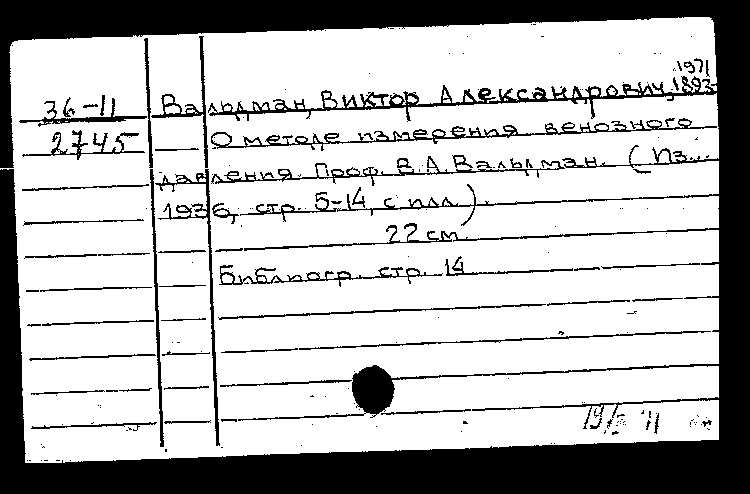 1971
36-11 Вальдман, Виктор Александрович, 1893-
2745 О методе измерения венозного
давления. Проф. В.А. Вальдман. (Из...
1936, стр. 5-14, с илл.).
22 см.
Библиогр. стр. 14